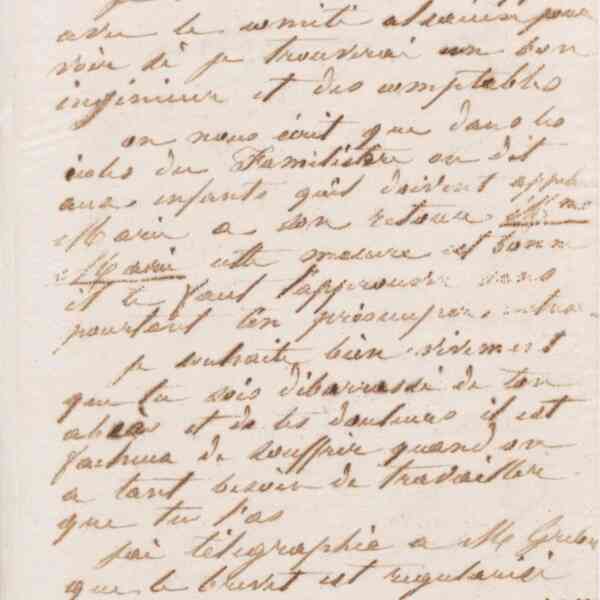 avec le comité alsacien pour
voir si je trouverai un bon
ingénieur et des comptables
on nous écrit que dans les
écoles du Familistère on dit
aux enfants qu'il doivent appeler
Marie a son retour Mme
Marie cette mesure est bonne
et il faut l'approuver sans
pourtant l'en
je souhaite bien vivement
que tu sois débarrassé de ton
abcès et de tes douleurs il est
facheux de souffrir quand on
a tant besoin de travailler
que tu l'as
j'ai télégraphié a M
que le brevet est régularisé